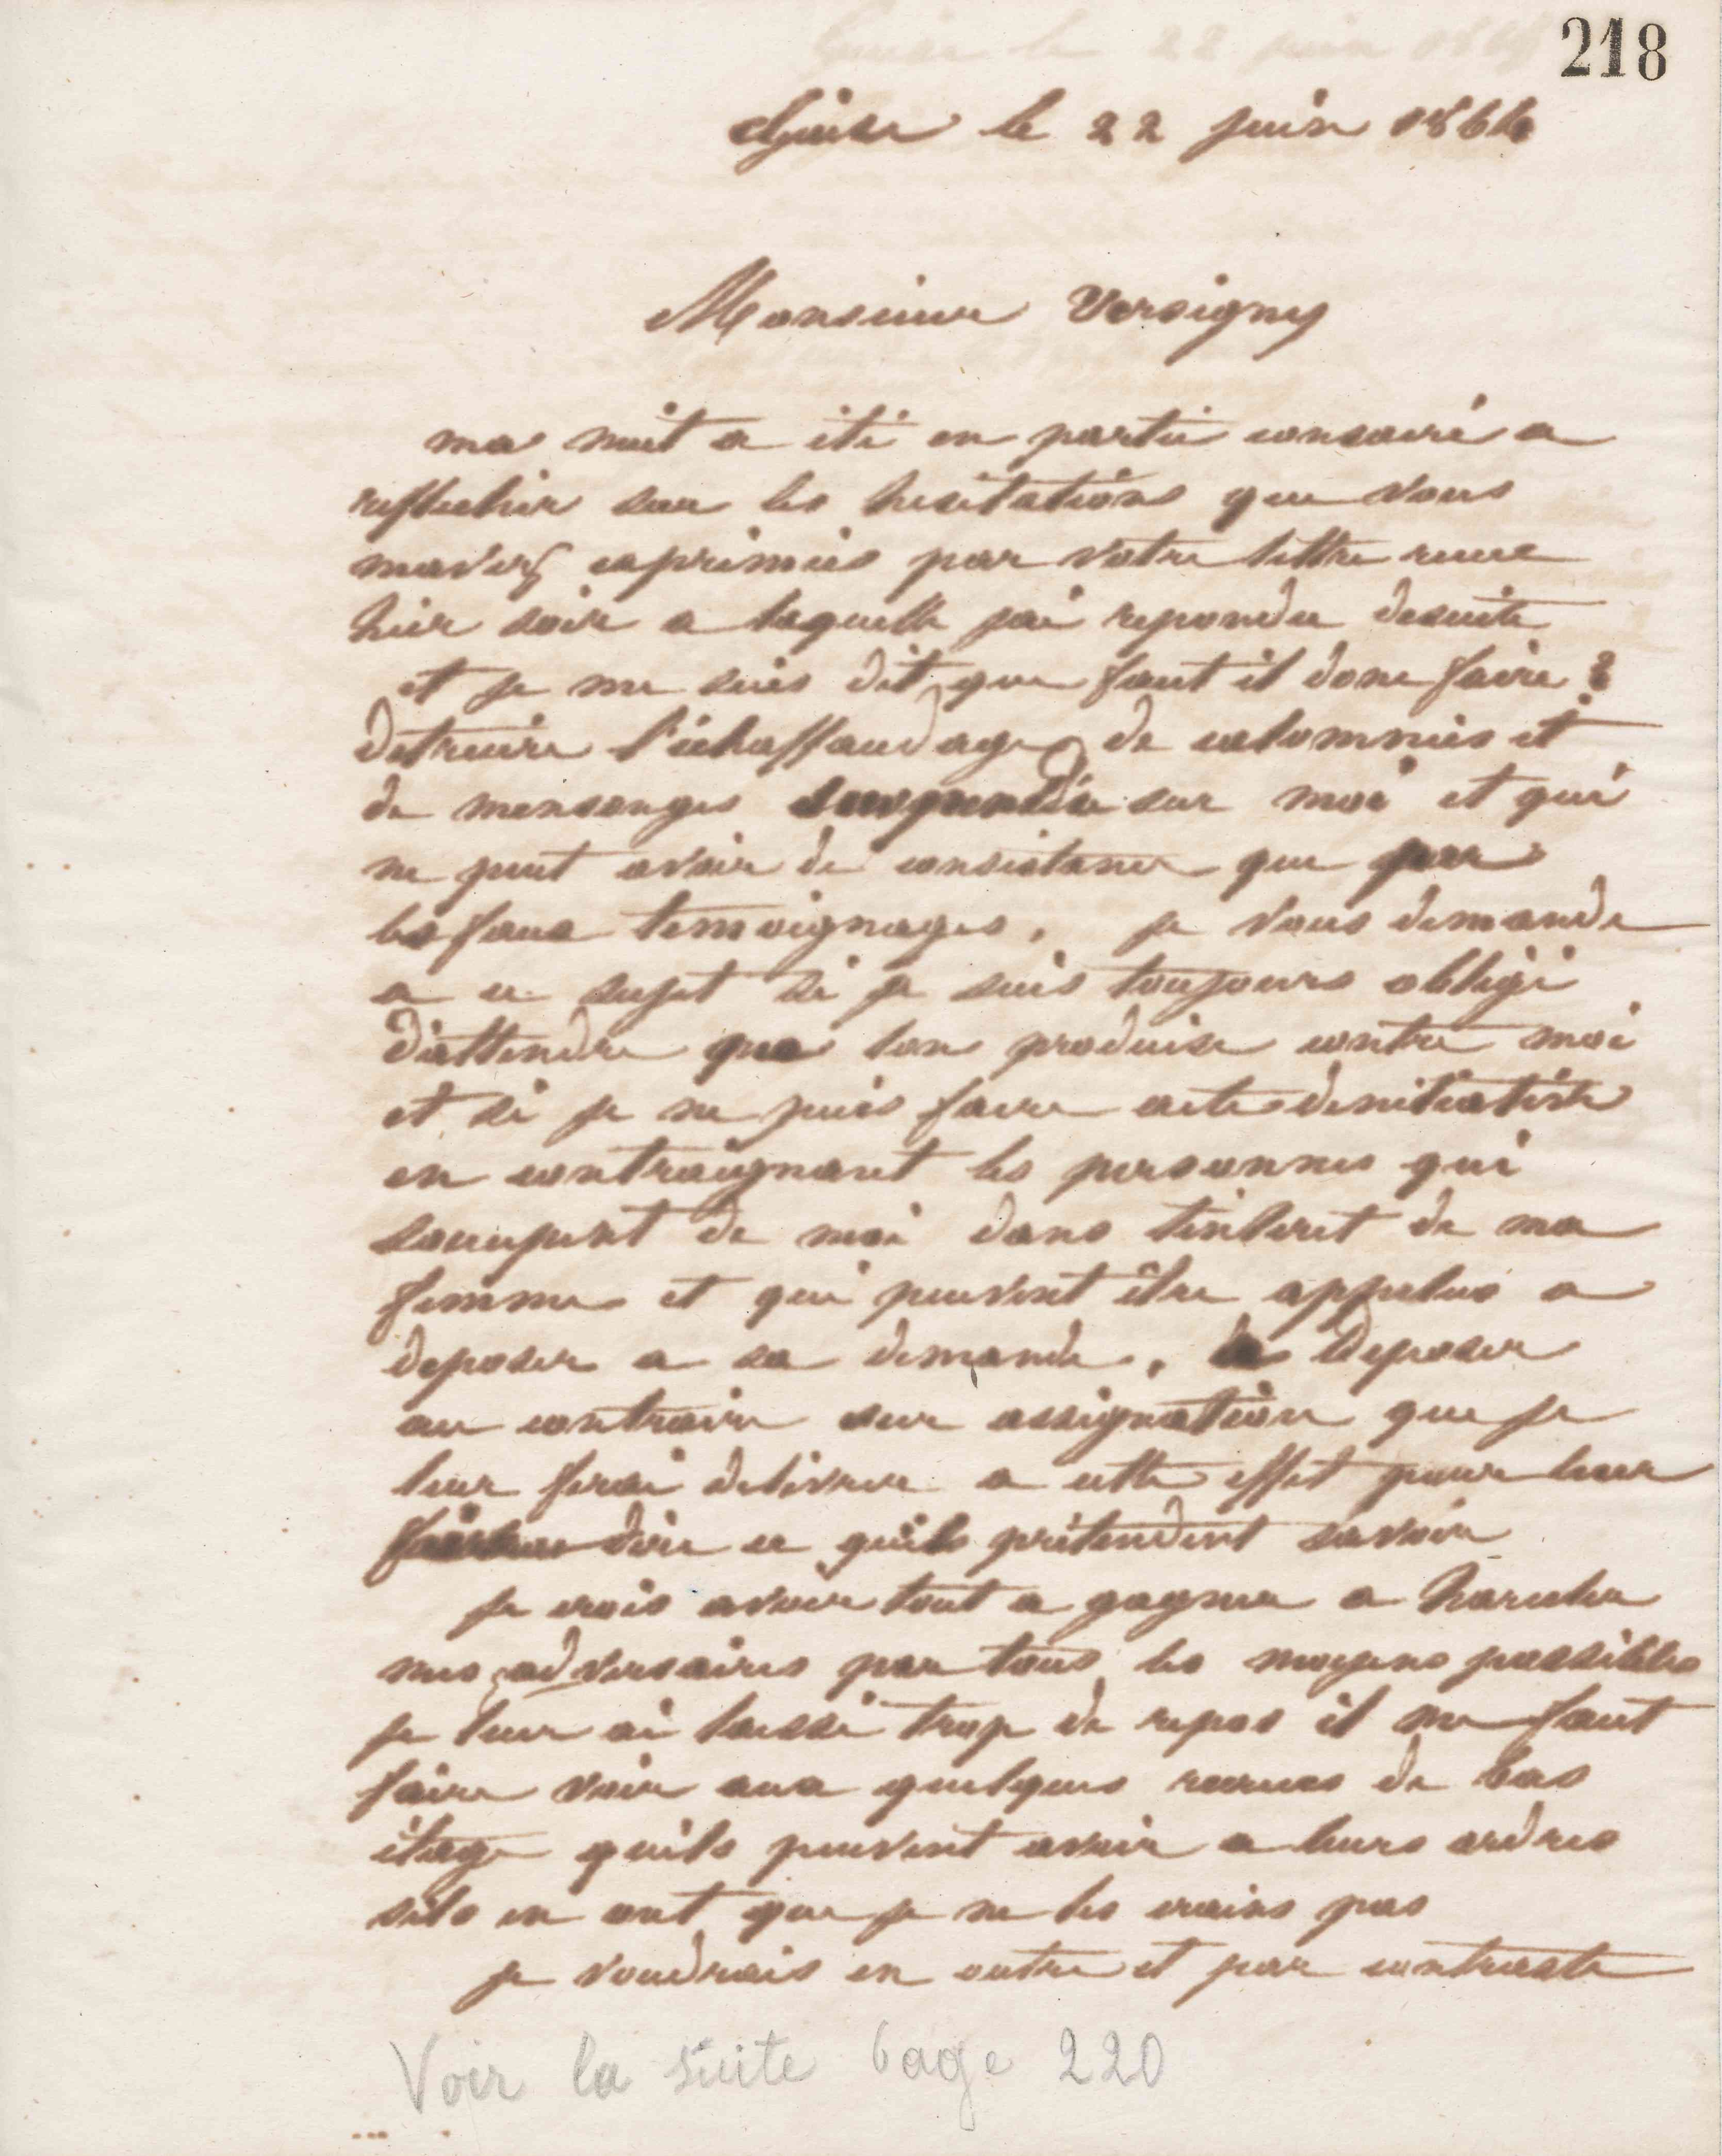 218
Guise le 22 juin 1864
Monsieur Versigny
ma nuit a été en partie consacré a
reflechir sur les hesitations que vous
mavez exprimées par votre lettre recue
hier soir a laquelle jai repondu desuite
et je me suis dit que faut il donc faire ?
detruire l'échaffaudage de calomnies et
de mensonges suspendu sur moi et qui
ne peut avoir de consistance que par
les faux temoignages. je vous demande
a ce sujet si je suis toujours obligé
d'attendre que lon produise contre moi
et si je ne puis faire acte dinitiative
en contraignant les personnes qui
soccupent de moi dans linteret de ma
femme et qui peuvent être appelees a
deposer a sa demande, a deposer
au contraire sur assignation que je
leur ferai delivrer a cette effet pour leur
faire dire ce quils prétendent savoir
je crois avoir tout a gagner a harceler
mes adversaires par tous les moyens possibles
je leur ai laissé trop de repos il me faut
faire voir aux quelques recrues de bas
étage quils peuvent avoir a leurs ordres
sils en ont que je ne les crains pas
je voudrais en outre et par contraste
Voir la suite page 220